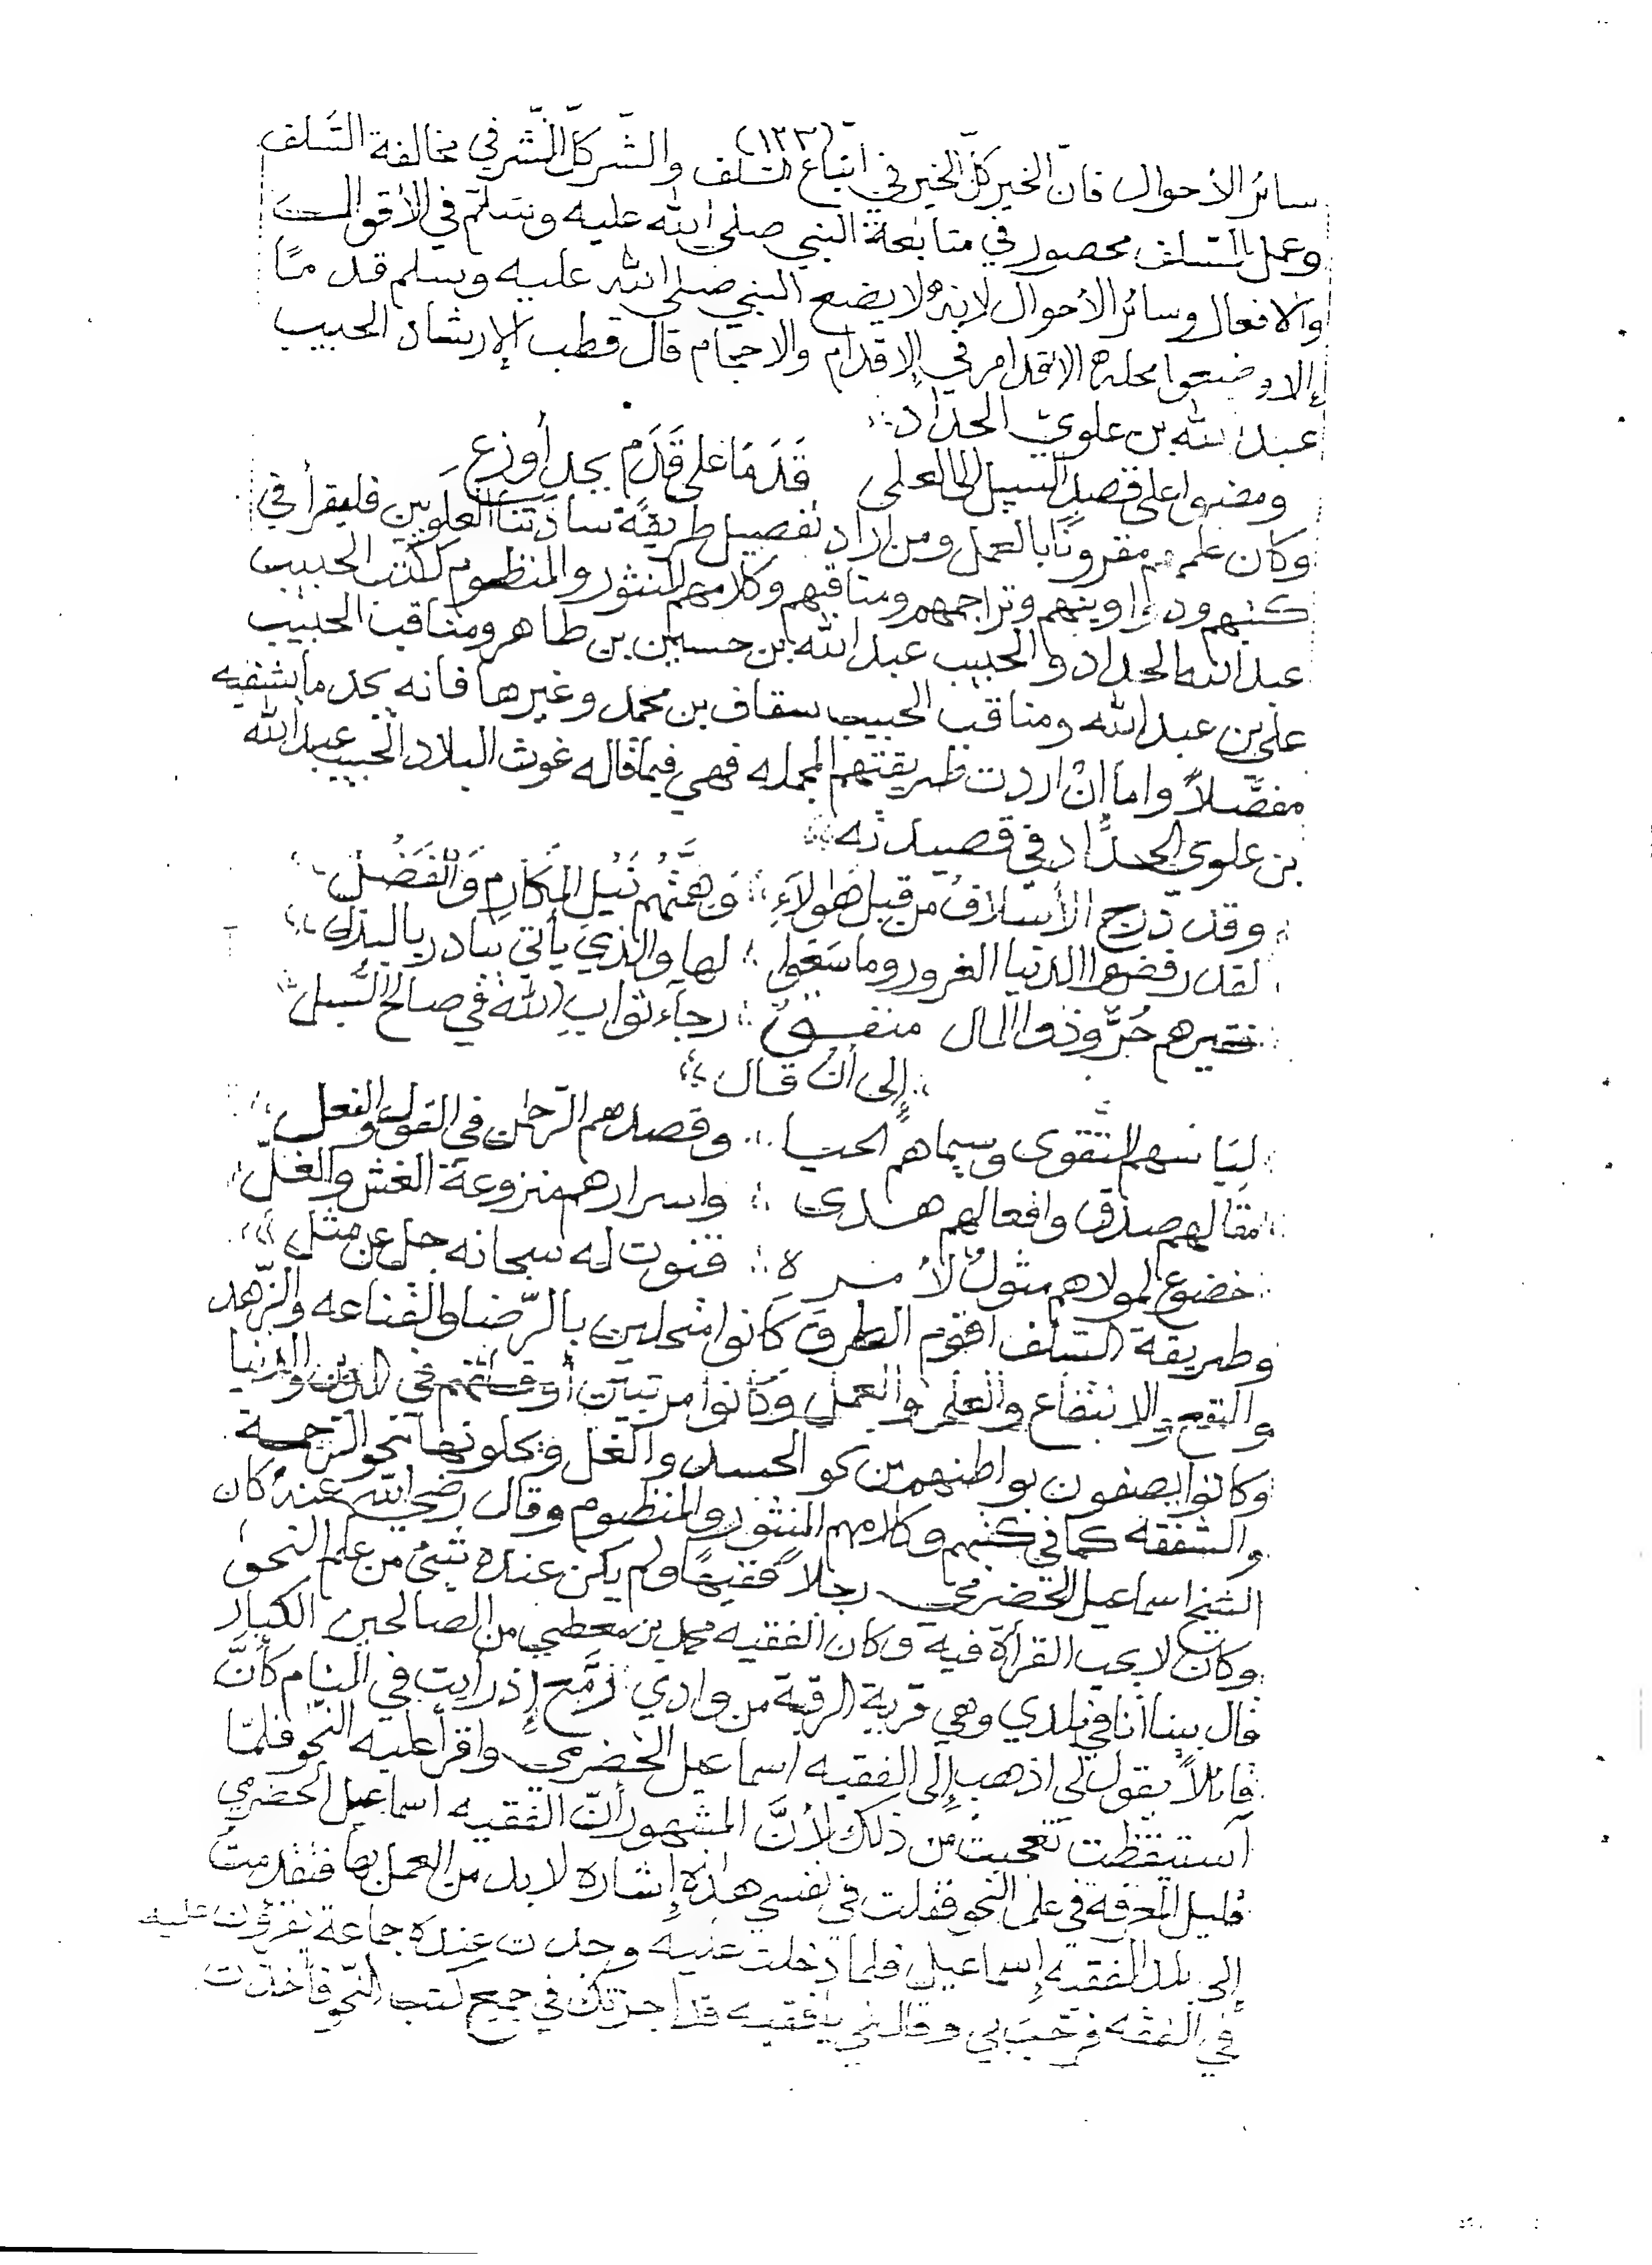 (١٣٣)
سائر الأحوال فان الخير كل الخير في اتباع السلف والشر كل الشر في مخالفة السلف
وعمل السلف محصور في متابعة النبي صلى الله عليه وسلم في الأقوال
والافعال وسائر الأحوال لانه لا يضع النبي صلى الله عليه وسلم قدمًا
إلا وضعوا محله الاقدام في الإقدام والاحجام قال قطب الإرشاد الحبيب
عبد الله بن علوي الحداد
ومضوا على قصد السبيل الى العلى قَدَمًا على قَدَم بجد أوزع
وكان علمهم مقرونًا بالعمل ومن اراد تفصيل طريقة سادتنا العلويين فليقرأ في
كتبهم ودواوينهم وتراجمهم ومناقبهم وكلامهم المنثور والمنظوم ككتب الحبيب
عبد الله الحداد والحبيب عبد الله بن حسين بن طاهر ومناقب الحبيب
علي بن عبد الله ومناقب الحبيب سقاف بن محمد وغيرها فانه يجد ما يشفيه
مفصَّلاً واما إنْ اردت طريقتهم المجمله فهي فيما قاله غوث البلاد الحبيب عبد الله
بن علوي الحدَّاد في قصيدته
وقد دَرج الأسلافُ من قبل هؤلاءِ ؛ وَهمَّتُهم نَيْل المكَارِم وَالْفَضْل
لقد رفضوا الدنيا الغرور وما سَعَوا ؛ لها والذي يأتي يبادر بالبذل
فقيرهم حُرٌّ وذو المال منفقٌ ؛ رجاء ثواب الله في صالح السُّبل
إلى أن قال
لباسهم التقوى وسيماهم الحيا ؛ وقصدهم الرحمن في القول والفعل
مقالهم صدق وافعالهم هدى ؛ واسرارهم منزوعة الغش والغلّ
خضوع لمولاهم مثولٌ لأمره ؛ قنوت له سبحانه جل عن مثل
وطريقة السَّلف اقوم الطرق كانوا متحلين بالرّضا والقناعه والزّهد
والنفع والانتفاع والعلم والعمل وكانوا مرتبين أوقاتهم في الدين والدنيا
وكانوا يصفون بواطنهم من نحو الحسد والغل ويحلونها بنحو الرّحمة
والشفقه كما في كتبهم وكلامهم المنثور والمنظوم وقال رضي الله عنه كان
الشيخ اسماعيل الحضرمي رجلاً فقيهًا ولم يكن عنده شيئ من علم النحو
وكان لا يحب القرأة فيه وكان الفقيه محمد بن معطي من الصالحين الكبار
قال بينا أنا في بلدي وهي قرية الرقبة من وادي زمَّع إذ رأيت في المنام كأنَّ
قائلاً يقول لي اذهب إلى الفقيه اسماعيل الحضرمي واقرأ عليه النّحو فلمّا
استيقظت تعجبت من ذلك لأنَّ المشهور أنّ الفقيه اسماعيل الحضرمي
قليل المعرفة في علم النحو فقلت في نفسي هذه إشاره لا بد من العمل بها فتقدمت
إلى بلد الفقيه إسماعيل فلما دخلت عليه وجدت عنده جماعة يقرؤن عليه
في الفقه فرحّب بي وقال لي يا فقيه قد اجزتك في جميع كتب النّحو فأخذت